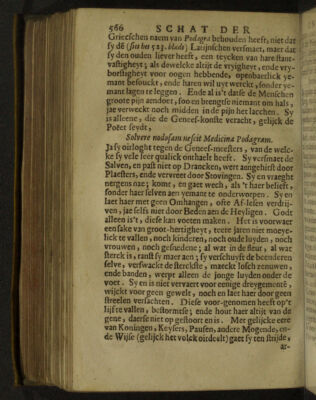 566 SCHAT DER
Grieckschen naem van Podagra behouden heeft, niet dat
sy de (siet het 523. bladt) Latijnschen versmaet, maer dat
sy den ouden liever heeft, een teycken van hare stant-
vastigheyt; als dewelcke altijt de vryigheyt, ende vry-
borstigheyt voor oogen hebbende, openbaerlick ye-
mant besoeckt, ende haren wil uyt werckt, sonder ye-
mant lagen te leggen. Ende al is't datse de Menschen
groote pijn aendoet, soo en brengse niemant om hals,
jae verweckt noch midden in de pijn het lachen. Sy
is alleene, die de Geneef-konste veracht, gelijck de
Poëet seydt,
Solvere nodosam nescit Medicina Podagram.
Ja sy oirloght tegen de Geneef-meesters, van de welc-
ke sy vele seer qualick onthaelt heeft. Sy versmaet de
Salven, en past niet op Drancken, wert aengehitst door
Plaesters, ende verwreet door Stovingen. Sy en vraeght
nergens nae; komt, en gaet wech, als 't haer belieft,
sonder haer selven aen yemant te onderworpen. Sy en
laet haer met geen Omhangen, ofte Af-lesen verdrij-
ven, jae selfs niet door Beden aen de Heyligen. Godt
alleen is't, diese kan voeten maken. Het is voorwaer
een sake van groot-hertigheyt, teere jaren niet moeye-
lick te vallen, noch kinderen, noch oude luyden, noch
vrouwen, noch gesnedene; al wat in de fleur, al wat
sterck is, ranst sy maer aen; sy verschuyft de beenderen
selve, verswackt de sterckste, maeckt losch zenuwen,
ende banden, werpt alleen de jonge luyden onder de
voet. Sy en is niet vervaert voor eenige dreygementê,
wijckt voor geen gewelt, noch en laet haer door geen
streelen versachten. Diese voor-genomen heeft op't
lijf te vallen, bestormtse; ende hout haer altijt van de
gene, daerse niet op gestoort en is. Met gelijcke eere
van Koningen, Keysers, Pausen, andere Mogende, en-
de Wijse (gelijck het volck oirdeelt) gaet sy ten strijde,
ar-